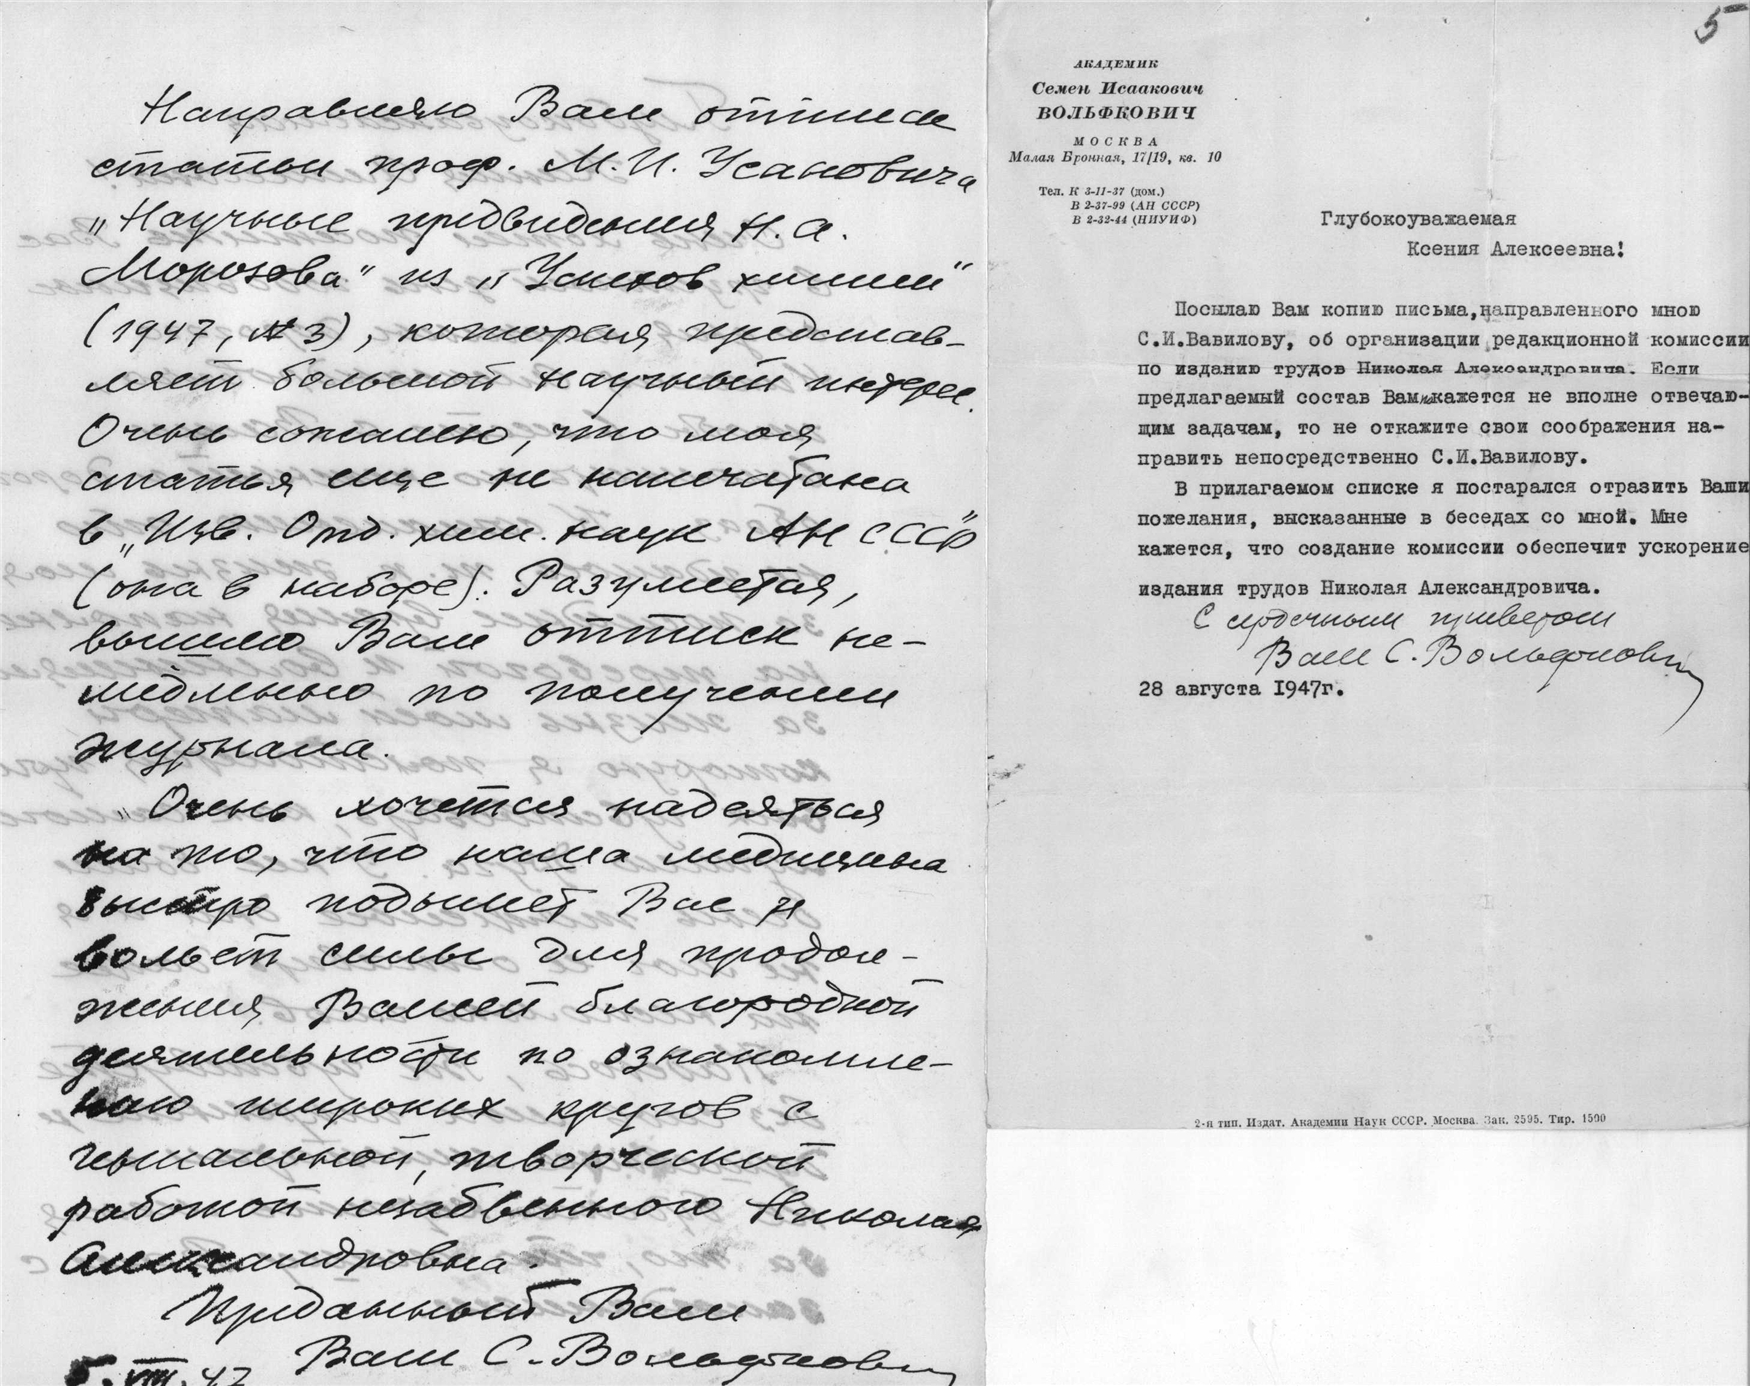 Направляю Вам оттиск
статьи проф. М.И. Усановича
„Научные предвидения Н.А.
Морозова" из „Успехов химии"
(1947, № 3), которая представ-
ляет большой научный интерес.
Очень сожалею, что моя
статья еще не напечатана
в „Изв. Отд. хим. наук АН СССР"
(она в наборе). Разумеется,
вышлю Вам оттиск не-
медленно по получении
журнала.
Очень хочется надеяться
на то, что наша медицина
быстро подымет Вас и
вольет силы для продол-
жения Вашей благородной
деятельности по ознакомле-
нию широких кругов с
гениальной, творческой
работой незабвенного Николая
Александровича.
Преданный Вам
Ваш С. Вольфкович
5. VIII. 47
5
АКАДЕМИК
Семен Исаакович
ВОЛЬФКОВИЧ
МОСКВА
Малая Бронная, 17/19, кв. 10
Тел. К 3-11-37 (дом.)
В 2-37-99 (АН СССР)
В 2-32-44 (НИУИФ)
Глубокоуважаемая
Ксения Алексеевна!
Посылаю Вам копию письма,направленного мною
С.И.Вавилову, об организации редакционной комиссии
по изданию трудов Николая Александровича. Если
предлагаемый состав Вам покажется не вполне отвечаю-
щим задачам, то не откажите свои соображения на-
править непосредственно С.И.Вавилову.
В прилагаемом списке я постарался отразить Ваши
пожелания, высказанные в беседах со мной. Мне
кажется, что создание комиссии обеспечит ускорение
издания трудов Николая Александровича.
С сердечным приветом
Ваш С. Вольфкович
28 августа 1947г.
2-я тип. Издат. Академии Наук СССР. Москва. Зак. 2595. Тир. 1500